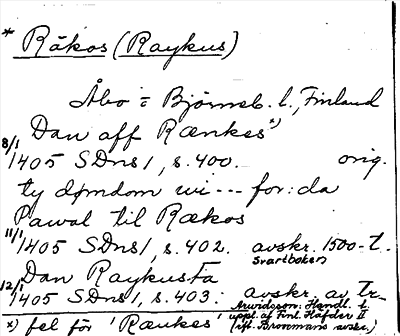 * Räkos (Raykus)
Åbo = Björneb. l., Finland
Dan aff Rænkes x)
8/1 1405 SDns1, s. 400. orig.
ty dømdom wi --- for: da
Pawal til Rækos
11/1 1405 SDns1, s. 402. avskr. 1500-t.
Svartboken
Dan Raykusta
12/1 1405 SDns1, s. 403. avskr. av tr.
Arwidsson. Handl. t.
uppl. af Finl. Häfder II
x) fel för 'Raukes' (ift. Broomans avskr.)